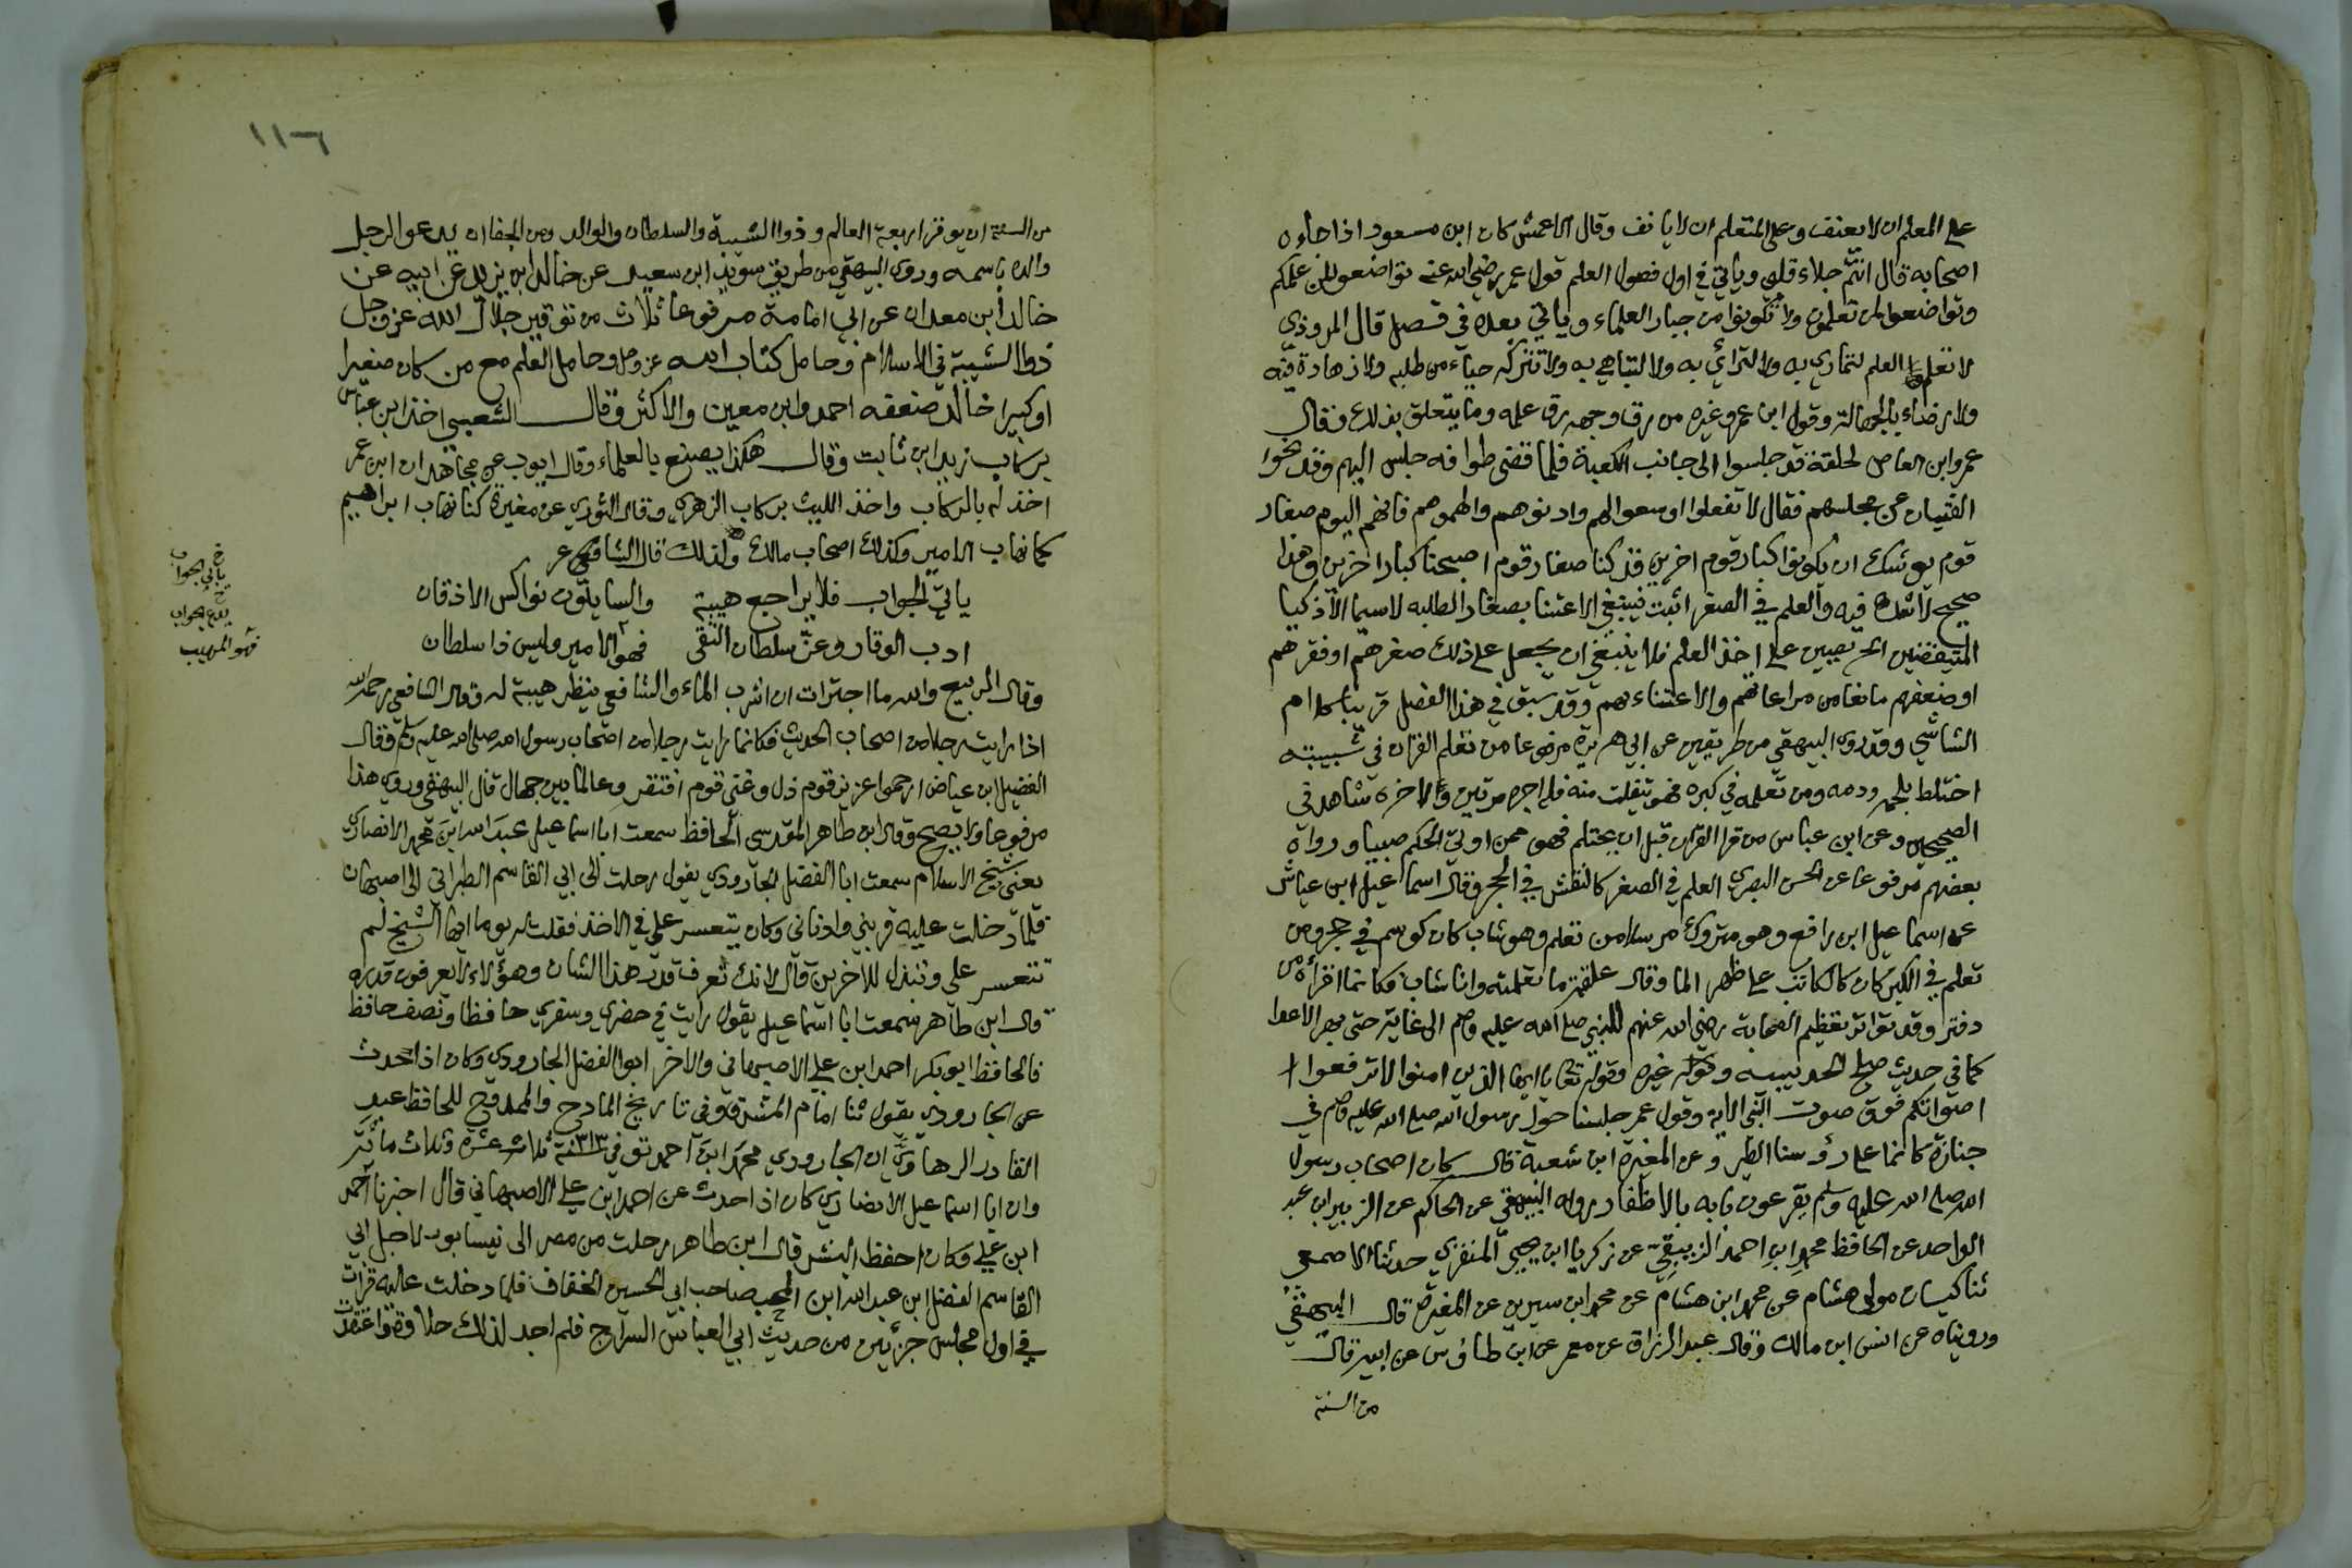 على المعلم ان لا يعنف وعلى المتعلم ان لا يانف وقال الاعمش كان ابن مسعود اذا جاءه
اصحابه قال انتم جلاء قلبي وياتي في اول فصول العلم قول عمر رضي الله عنه تواضعوا لمن علمكم
وتواضعوا لمن تعلمون ولا تكونوا من جبار العلماء وياتي بعده في فصل قال المروذي
لا تعلم العلم لتماري به ولا لترائي به ولا لتباهي به ولا تتركه حياء من طلبه ولا زهادة فيه
ولا رضاء بالجهالة وقول ابن عمر وغيره من رق وجهه رق علمه وما يتعلق بذلك وقال
عمرو ابن العاص لحلقة قد جلسوا الى جانب الكعبة فلما قضى طوافه جلس اليهم وقد نحوا
الفتيان عن مجلسهم فقال لا تفعلوا اوسعوا لهم وادنوهم والهموهم فانهم اليوم صغار
قوم يوشك ان يكونوا كبار قوم اخرين قد كنا صغار قوم اصبحنا كبار اخرين وهذا
صحيح لا شك فيه والعلم في الصغر اثبت فينبغي الاعتنا بصغار الطلبه لا سيما الاذكيا
المتيقضين الحريصين على اخذ العلم فلا ينبغي ان يجعل على ذلك صغرهم او فقرهم
او ضعفهم مانعا من مراعاتهم والاعتناء بهم وقد سبق في هذا الفصل قريبا كلام
الشاشي وقد روى البيهقي من طريقين عن ابي هريرة مرفوعا من تعلم القران في شبيبته
اختلط بلحمه ودمه ومن تعلمه في كبره فهو يتفلت منه فله اجره مرتين ولاخره شاهد في
الصحيحين وعن ابن عباس من قرا القران قبل ان يحتلم فهو ممن اوتي الحكم صبيا ورواه
بعضهم مرفوعا عن الحسن البصري العلم في الصغر كالنقش في الحجر وقال اسماعيل ابن عياش
عن اسماعيل ابن رافع وهو متروك مرسلا من تعلم وهو شاب كان كوسم في حجر ومن
تعلم في الكبر كان كالكاتب على ظهر الما وقال علقمة ما تعلمته وانا شاب فكانما اقراه من
دفتر وقد تواتر تعظيم الصحابة رضي الله عنهم للنبي صلى الله عليه وسلم الى غاية حتى
كما في حديث صلح الحديبيه وغيره وقوله تعالى يا ايها الذين امنوا لا ترفعوا ا
اصواتكم فوق صوت النبي الاية وقول عمر جلسنا حول رسول الله صلى الله عليه وسلم في
جنازة كانما على رؤسنا الطير وعن المغيرة ابن شعبة قال كان اصحاب رسول
الله صلى الله عليه وسلم يقرعون بابه بالاظفار رواه البيهقي عن الحاكم عن الزبير ابن عبد
الواحد عن الحافظ محمد ابن احمد الزيبقي عن زكريا ابن يحيى المنقري حدثنا الاصمعي
ثنا كيسان مولى هشام عن محمد ابن هشام عن محمد ابن سيرين عن المغيرة قال البيهقي
ورويناه عن انس ابن مالك وقال عبد الرزاق عن معمر عن ابن طاوس عن ابيه قال
من السنة
١١٦
من السنة ان يوقر اربعة العالم وذوا الشيبة والسلطان والوالد ومن الجفا ان يدعو الرجل
والده باسمه وروى البيهقي من طريق سويد ابن سعيد عن خالد ابن يزيد عن ابيه عن
خالد ابن معدان عن ابي امامة مرفوعا ثلاث من توقير جلال الله عز وجل
ذوا الشيبة في الاسلام وحامل كتاب الله عز وجل وحامل العلم مع من كان صغيرا
او كبيرا خالد ضعفه احمد وابن معين والاكثر وقال الشعبي اخذ ابن عباس
بركاب زيد ابن ثابت وقال هكذا يصنع بالعلماء وقال ايوب عن مجاهد ان ابن عمر
اخذ له بالركاب واخذ الليث بركاب الزهري وقال الثوري عن مغيرة كنا نهاب ابراهيم
كما نهاب الامير وكذلك اصحاب مالك ولذلك قال الشافعي
يابي الجواب فلا يراجع هيبة والسايلون نواكس الاذقان
ادب الوقار وعز سلطان التقى فهو الامير وليس ذا سلطان
خ
يابى الجواب
خ
يدع الجواب
فهو المهيب
وقال الربيع والله ما اجترات ان اشرب الماء والشافعي ينظر هيبة له وقال الشافعي رحمه الله
اذا رايت رجلا من اصحاب الحديث فكانما رايت رجلا من اصحاب رسول الله صلى الله عليه وسلم وقال
الفضيل ابن عياض ارحموا عزيز قوم ذل وغني قوم افتقر وعالما بين جهال قال البيهقي وروي هذا
مرفوعا ولا يصح وقال ابن طاهر المقدسي الحافظ سمعت ابا اسماعيل عبد الله ابن محمد الانصاري
يعني شيخ الاسلام سمعت ابا الفضل الجارودي يقول رحلت الى ابي القاسم الطبراني الى اصبهان
فلما دخلت عليه قربني وادناني وكان يتعسر علي في الاخذ فقلت له يوما ايها الشيخ لم
تتعسر علي وتبذل للاخرين قال لانك تعرف قدر هذا الشان وهؤلاء لا يعرفون قدره
وقال ابن طاهر سمعت ابا اسماعيل يقول رايت في حضري وسفري حافظا ونصف حافظ
فالحافظ ابو بكر احمد ابن علي الاصبهاني والاخر ابوا الفضل الجارودي وكان اذا حدث
عن الجارودي يقول ثنا امام المشرق وفي تاريخ المادح والممدوح للحافظ عبد
القادر الرهاوي ان الجارودي محمد ابن احمد توفي ٣١٣ سنة ثلاث عشرة وثلاث مائة
وان ابا اسماعيل الانصاري كان اذا حدث عن احمد ابن علي الاصبهاني قال اخبرنا احمد
ابن علي وكان احفظ البشر قال ابن طاهر رحلت من مصر الى نيسابور لاجل ابي
القاسم الفضل ابن عبد الله ابن المحب صاحب ابي الحسين الخفاف فلما دخلت عليه قرات
في اول مجلس جزئين من حديث ابي العباس السراج فلم اجد لذلك حلاوة واعتقدت